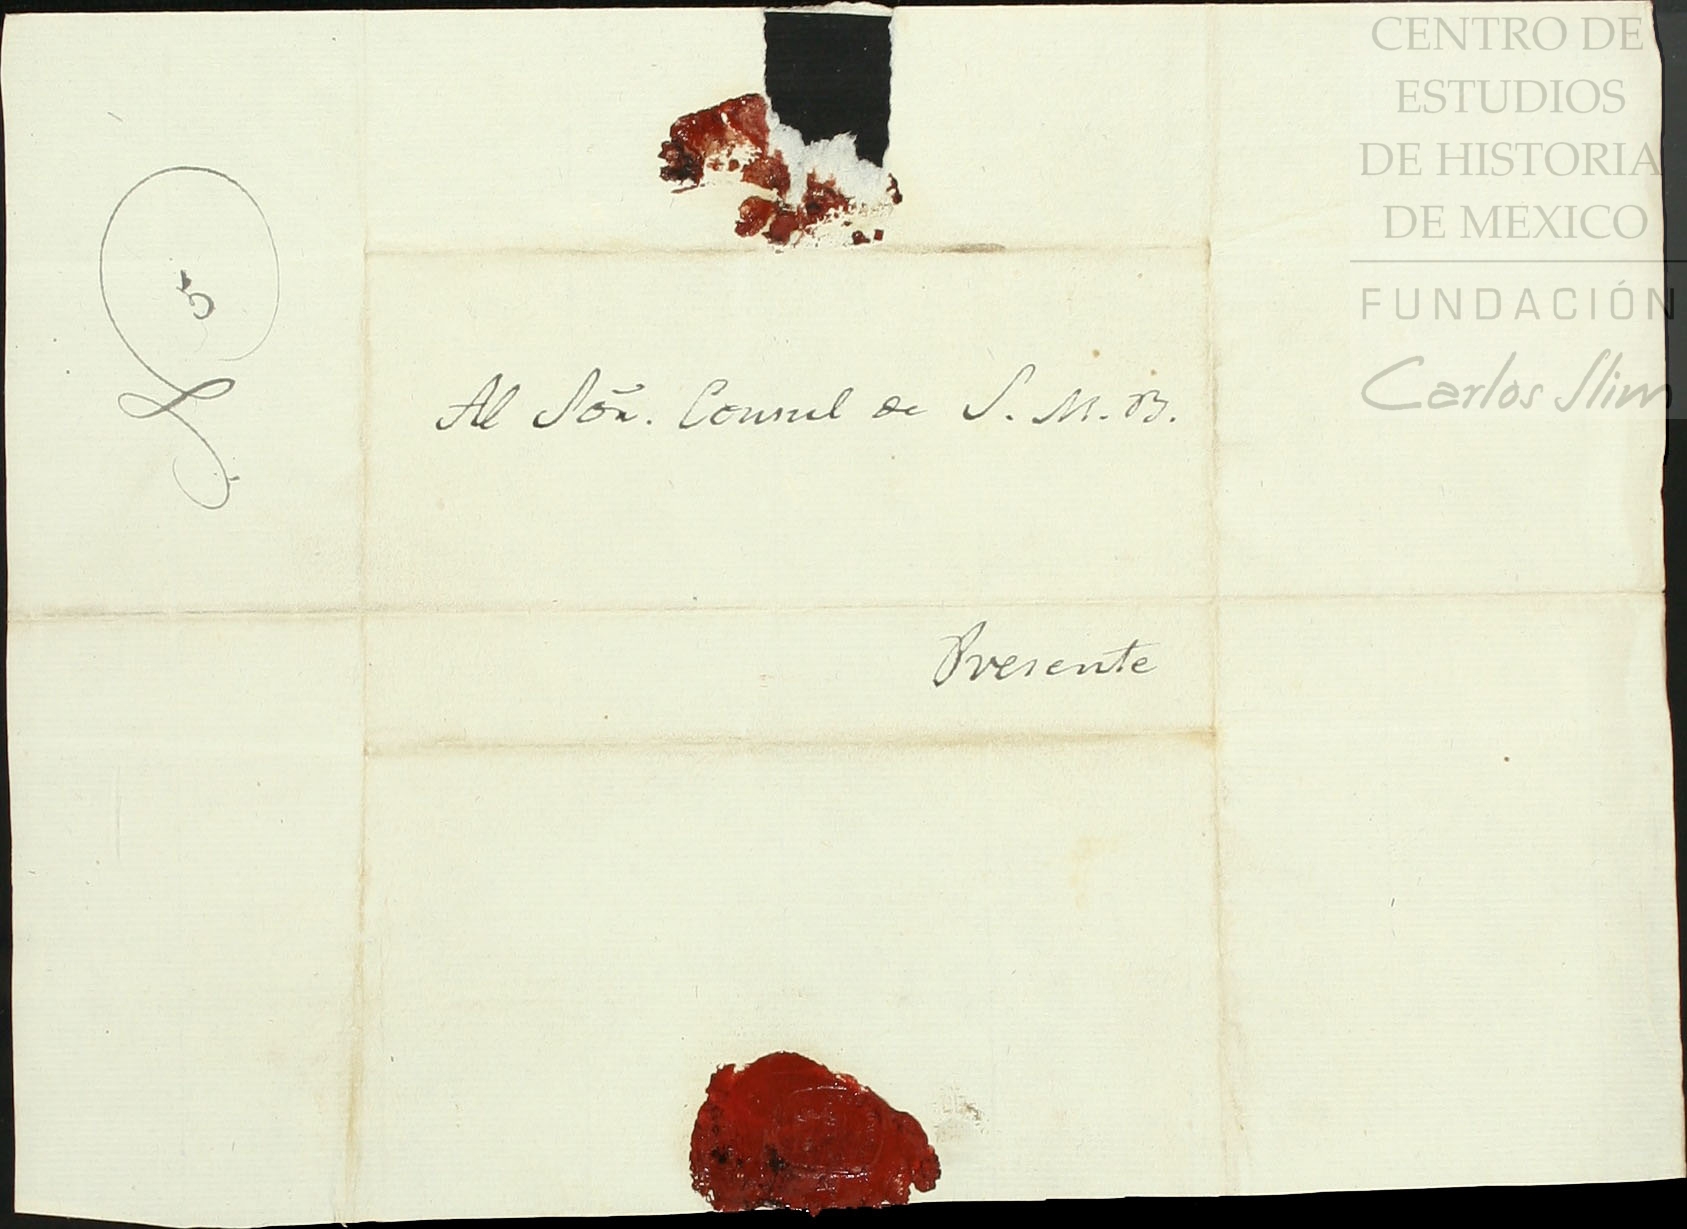 CENTRO DE
ESTUDIOS
DE HISTORIA
DE MEXICO
FUNDACIÓN
Carlos Slim
5
Al Soñr. Consul de S. M. B.
Presente